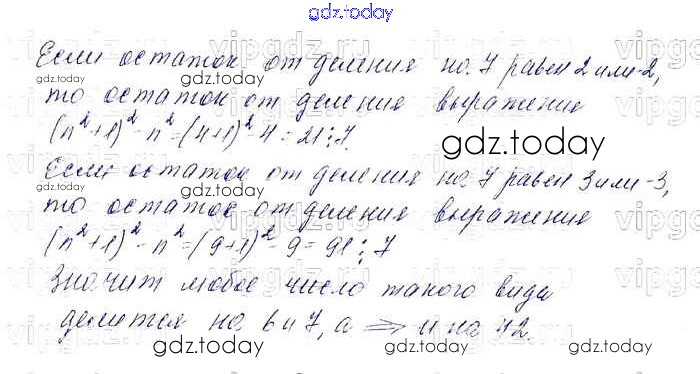 gdz.today
Если остаток от деления на 7 равен 2 или -2,
то остаток от деления выражения
(n²+1)²-n²=(4+1)²-4=21⋮7.
Если остаток от деления на 7 равен 3 или -3,
то остаток от деления выражения
(n²+1)²-n²=(9+1)²-9=91⋮7
Значит любое число такого вида
делится на 6 и 7, а ⇒ и на 42.
gdz.today
gdz.today
gdz.today
gdz.today
gdz.today
gdz.today
gdz.today